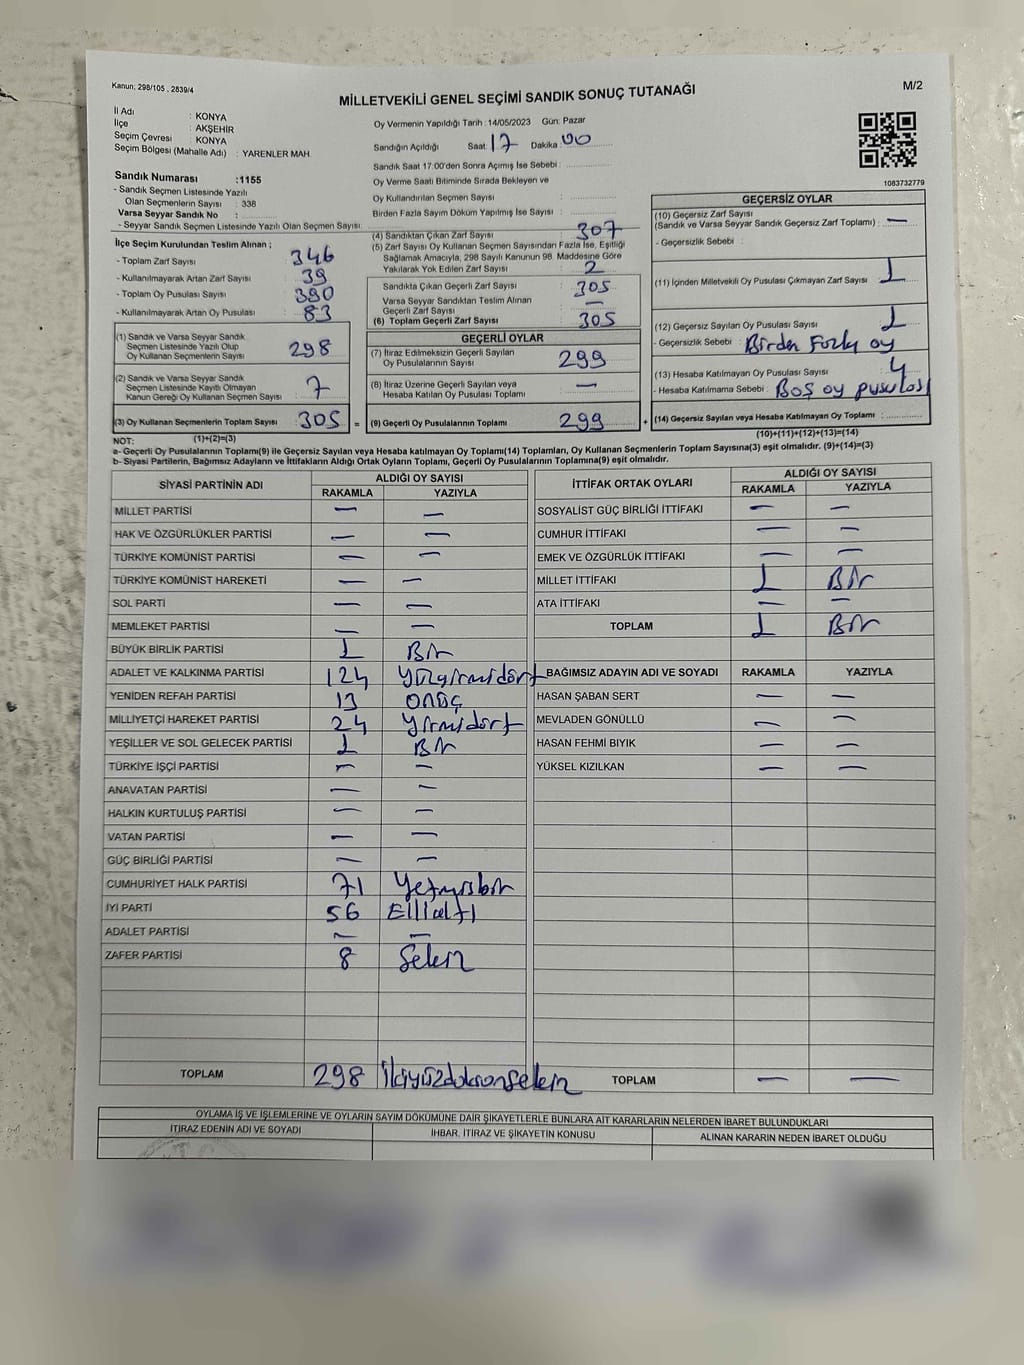 Kanun: 298/105 , 2839/4
M/2
MİLLETVEKİLİ GENEL SEÇİMİ SANDIK SONUÇ TUTANAĞI
İl Adı : KONYA
İlçe : AKŞEHİR
Seçim Çevresi : KONYA
Seçim Bölgesi (Mahalle Adı) : YARENLER MAH.
Sandık Numarası :1155
- Sandık Seçmen Listesinde Yazılı
Olan Seçmenlerin Sayısı : 338
Varsa Seyyar Sandık No :
- Seyyar Sandık Seçmen Listesinde Yazılı Olan Seçmen Sayısı
Oy Vermenin Yapıldığı Tarih :14/05/2023 Gün: Pazar
Sandığın Açıldığı Saat: 17 Dakika: 00
Sandık Saat 17:00'den Sonra Açımış İse Sebebi :
Oy Verme Saati Bitiminde Sırada Bekleyen ve
Oy Kullandırılan Seçmen Sayısı :
Birden Fazla Sayım Döküm Yapılmış İse Sayısı :
1083732779
İlçe Seçim Kurulundan Teslim Alınan ;
- Toplam Zarf Sayısı : 346
- Kullanılmayarak Artan Zarf Sayısı : 39
- Toplam Oy Pusulası Sayısı : 390
- Kullanılmayarak Artan Oy Pusulası : 83
(1) Sandık ve Varsa Seyyar Sandık
Seçmen Listesinde Yazılı Olup
Oy Kullanan Seçmenlerin Sayısı : 298
(2) Sandık ve Varsa Seyyar Sandık
Seçmen Listesinde Kayıtlı Olmayan
Kanun Gereği Oy Kullanan Seçmen Sayısı : 7
(3) Oy Kullanan Seçmenlerin Toplam Sayısı : 305
(4) Sandıktan Çıkan Zarf Sayısı : 307
(5) Zarf Sayısı Oy Kullanan Seçmen Sayısından Fazla İse, Eşitliği
Sağlamak Amacıyla, 298 Sayılı Kanunun 98. Maddesine Göre
Yakılarak Yok Edilen Zarf Sayısı : 2
Sandıkta Çıkan Geçerli Zarf Sayısı : 305
Varsa Seyyar Sandıktan Teslim Alınan
Geçerli Zarf Sayısı : —
(6) Toplam Geçerli Zarf Sayısı : 305
GEÇERLİ OYLAR
(7) İtiraz Edilmeksizin Geçerli Sayılan
Oy Pusulalarının Sayısı : 299
(8) İtiraz Üzerine Geçerli Sayılan veya
Hesaba Katılan Oy Pusulası Toplamı : —
= (9) Geçerli Oy Pusulalarının Toplamı : 299 +
GEÇERSİZ OYLAR
(10) Geçersiz Zarf Sayısı
(Sandık ve Varsa Seyyar Sandık Geçersiz Zarf Toplamı) : —
- Geçersizlik Sebebi :
(11) İçinden Milletvekili Oy Pusulası Çıkmayan Zarf Sayısı : 1
(12) Geçersiz Sayılan Oy Pusulası Sayısı : 1
- Geçersizlik Sebebi : Birden Fazla oy
(13) Hesaba Katılmayan Oy Pusulası Sayısı : 4
- Hesaba Katılmama Sebebi : Boş oy pusulası
(14) Geçersiz Sayılan veya Hesaba Katılmayan Oy Toplamı :
NOT: (1)+(2)=(3) (10)+(11)+(12)+(13)=(14)
a- Geçerli Oy Pusulalarının Toplamı(9) ile Geçersiz Sayılan veya Hesaba katılmayan Oy Toplamı(14) Toplamları, Oy Kullanan Seçmenlerin Toplam Sayısına(3) eşit olmalıdır. (9)+(14)=(3)
b- Siyasi Partilerin, Bağımsız Adayların ve İttifakların Aldığı Ortak Oyların Toplamı, Geçerli Oy Pusulalarının Toplamına(9) eşit olmalıdır.
SİYASİ PARTİNİN ADI ALDIĞI OY SAYISI
RAKAMLA YAZIYLA
MİLLET PARTİSİ — —
HAK VE ÖZGÜRLÜKLER PARTİSİ — —
TÜRKİYE KOMÜNİST PARTİSİ — —
TÜRKİYE KOMÜNİST HAREKETİ — —
SOL PARTİ — —
MEMLEKET PARTİSİ — —
BÜYÜK BİRLİK PARTİSİ 1 Bir
ADALET VE KALKINMA PARTİSİ 124 Yüzyirmidört
YENİDEN REFAH PARTİSİ 13 onüç
MİLLİYETÇİ HAREKET PARTİSİ 24 Yirmidört
YEŞİLLER VE SOL GELECEK PARTİSİ 1 Bir
TÜRKİYE İŞÇİ PARTİSİ — —
ANAVATAN PARTİSİ — —
HALKIN KURTULUŞ PARTİSİ — —
VATAN PARTİSİ — —
GÜÇ BİRLİĞİ PARTİSİ — —
CUMHURİYET HALK PARTİSİ 71 Yetmişbir
İYİ PARTİ 56 Ellialtı
ADALET PARTİSİ — —
ZAFER PARTİSİ 8 Sekiz
TOPLAM 298 İkiyüzdoksansekiz
İTTİFAK ORTAK OYLARI ALDIĞI OY SAYISI
RAKAMLA YAZIYLA
SOSYALİST GÜÇ BİRLİĞİ İTTİFAKI — —
CUMHUR İTTİFAKI — —
EMEK VE ÖZGÜRLÜK İTTİFAKI — —
MİLLET İTTİFAKI 1 Bir
ATA İTTİFAKI — —
TOPLAM 1 Bir
BAĞIMSIZ ADAYIN ADI VE SOYADI RAKAMLA YAZIYLA
HASAN ŞABAN SERT — —
MEVLADEN GÖNÜLLÜ — —
HASAN FEHMI BIYIK — —
YÜKSEL KIZILKAN — —
TOPLAM — —
OYLAMA İŞ VE İŞLEMLERİNE VE OYLARIN SAYIM DÖKÜMÜNE DAİR ŞİKAYETLERLE BUNLARA AİT KARARLARIN NELERDEN İBARET BULUNDUKLARI
İTİRAZ EDENİN ADI VE SOYADI İHBAR, İTİRAZ VE ŞİKAYETİN KONUSU ALINAN KARARIN NEDEN İBARET OLDUĞU